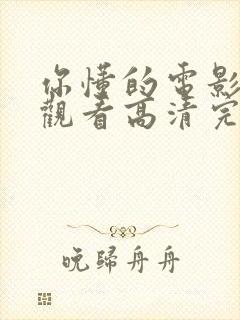 你懂的電影
觀看高清完
晚歸舟舟